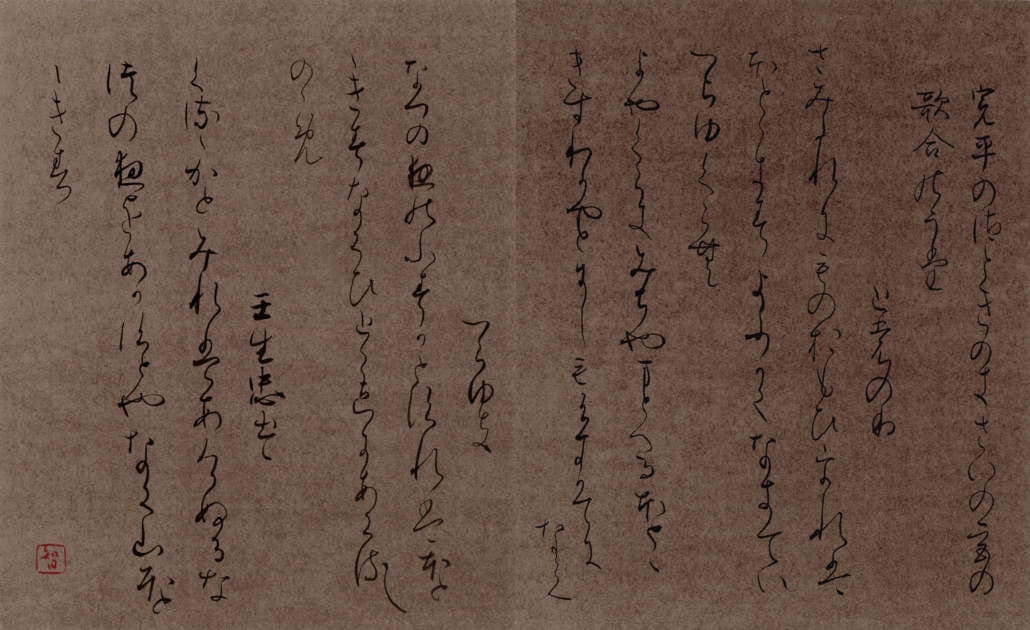 寛平の御ときのきさいの宮の
歌合のうた
とものり
さみたれにものおもひをれは
ほとゝきすよふかくなきてい
つちゆくらむ
よやくらきみちやまとへるほとゝ
きすわかやとをしもすきかてに
なく
つらゆき
なつの夜のふすかとすれはほと
ゝきすなくひとこゑにあくるし
のゝめ
壬生忠
くるゝかとみれはあけぬるな
つの夜をあかすとやなく山ほと
ゝきす
智